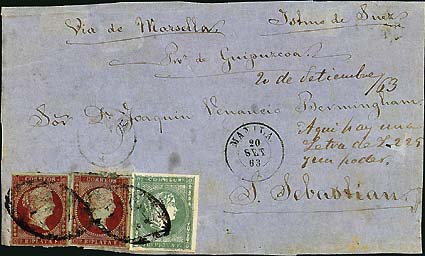 Via de Marsella. Istmo de Suez
Prov. de Guipuzcoa
20 de Setiembre/63
Sōr Dn Joaquin Venancio Bermingham.
Aqui hay una
Letra de L 225
y un poder.
S. Sebastian.
MANILA
20
SET
63
CORREOS
CORREOS
CORREOS